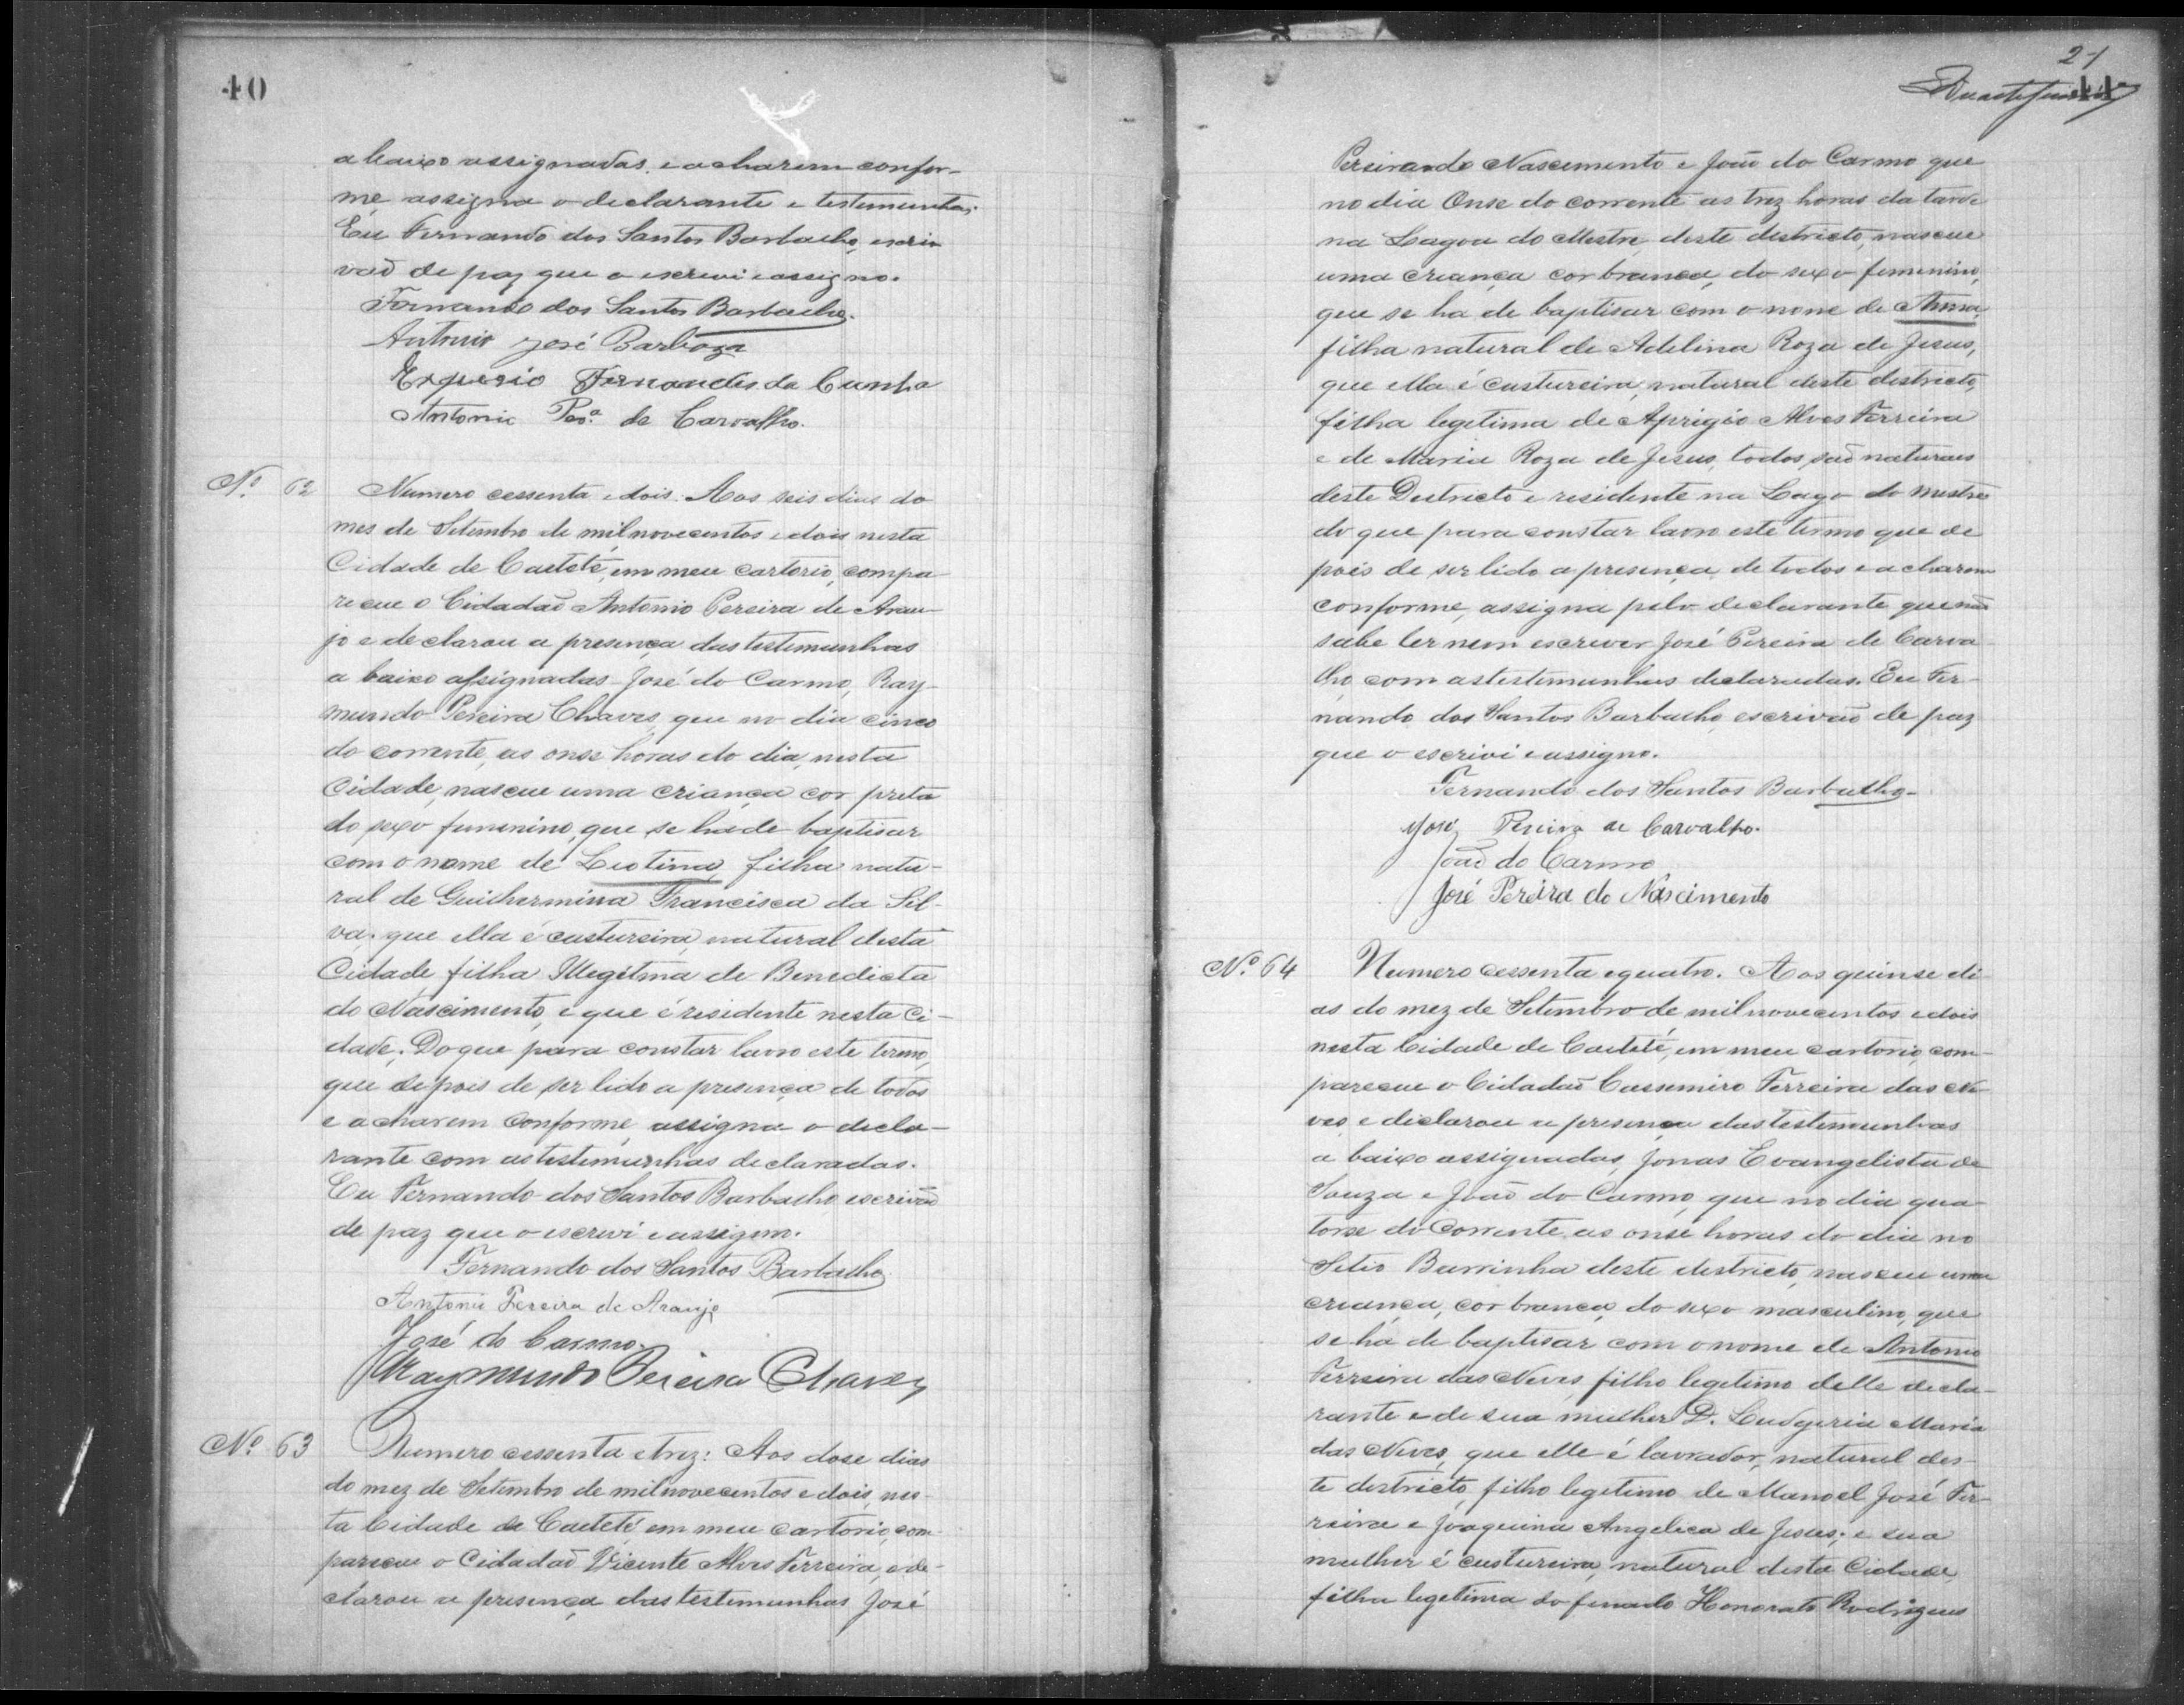 40
a baixo assignadas, e acharem confor-
me assigna o declarante e testemunhas.
Eu Fernando dos Santos Barbacho, escri
vaõ de paz que o escrevi e assigno.
Fernando dos Santos Barbacho.
Antonio José Barboza
Fernandes da Cunha
Antonio Per.ª de Carvalho.
Nº 62
Numero cessenta e dois. Aos seis dias do
mes de Setembro de mil novecentos e dois nesta
Cidade de Caeteté, em meu cartorio, compa
receu o Cidadaõ Antonio Pereira de Arau-
jo e declarou a presença das testemunhas
a baixo assignadas José do Carmo, Ray-
mundo Pereira Chaves, que no dia cinco
do corrente, as onse horas do dia, nesta
Cidade, nasceu uma criança cor preta
do sexo femenino, que se ha de baptisar
com o nome de Leotina, filha natu-
ral de Guilhermina Francisca da Sil-
va; que ella é custureira, natural desta
Cidade, filha Illegitma de Benedicta
do Nascimento, e que é residente nesta Ci-
dade; Do que para constar lavro este termo,
que depois de ser lido a presença de todos
e acharem conforme, assigna o decla-
rante com as testemunhas declaradas.
Eu Fernando dos Santos Barbacho escrivaõ
de paz que o escrevi e assigno.
Fernando dos Santos Barbacho
Antonio Pereira de Araujo
José do Carmo.
Raymundo Pereira Chaves
Nº 63
Numero cessenta e trez: Aos dose dias
do mez de Setembro de mil novecentos e dois, nes-
ta Cidade de Caeteté em meu cartorio, com-
pareceu o Cidadaõ Vicente Alves Ferreira, e de-
clarou a presença das testemunhas José
21
41
Pereira do Nascemento e Joaõ do Carmo que
no dia Onse do corrente as trez horas da tarde
na Lagoa do Mestre, deste destricto, nasceu
uma criança cor branca, do sexo femenino,
que se ha de baptisar com o nome de Anna,
filha natural de Adelina Roza de Jesus,
que ella é custureira, natural deste destricto,
filha legetima de Aprigio Alves Ferreira
e de Maria Roza de Jesus, todos saõ naturaes
deste Destricto e residente na Lago do Mestre
do que para constar lavro este termo que de
pois de ser lido a presença de todos e acharem
conforme, assigna pelo declarante que naõ
sabe ler nem escrever José Pereira de Carva
lho, com as testemunhas declaradas. Eu Fer-
nando dos Santos Barbacho, escrivaõ de paz
que o escrivi e assigno.
Fernando dos Santos Barbacho.
José Pereira de Carvalho.
Joaõ do Carmo
José Pereira do Nascimento
Nº 64
Numero cessenta e quatro. Aos quinse di
as do mez de Setembro de mil novecentos e dois
nesta Cidade de Caeteté, em meu cartorio, com-
pareceu o Cidadaõ Cassemiro Ferreira das Ne
ves, e declarou a presença das testemunhas
a baixo assignadas, Jonas Evangelista de
Souza e Joaõ do Carmo, que no dia qua
torse do Corrente, as onse horas do dia no
Sitio Barrinha deste destricto, nasceu uma
criança, cor branca, do sexo masculino, que
se ha de baptisar com o nome de Antonio
Ferreira das Neves, filho legetimo delle decla-
rante e de sua mulher D. Ludgeria Maria
das Neves, que elle é lavrador, natural des-
te destricto, filho legetimo de Manoel José Fer-
reira e Joaquina Angelica de Jesus; e sua
mulher é custureira, natural desta Cidade,
filha legetima do finado Honorato Rodrigues